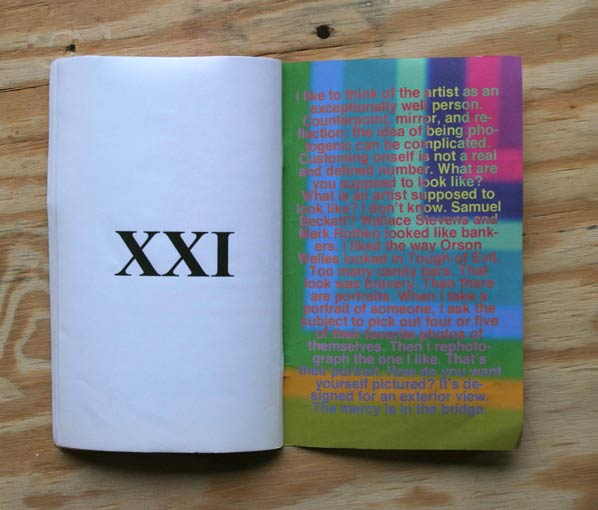 XXI
I like to think of the artist as an
exceptionally well person.
Counterpoint, mirror, and re-
flection: the idea of being pho-
togenic can be complicated.
Customing onself is not a real
and defined number. What are
you suppsed to look like?
What is an artist supposed to
look like? I don't know. Samuel
Beckett? Wallace Stevens and
Mark Rothko looked like bank-
ers. I liked the way Orson
Welles looked in Tough of Evil.
Too many candy bars. That
look was bravery. Then there
are portraits. When I take a
portrait of someone, I ask the
subject to pick out four or five
of their favorite photos of
themselves. Then I rephoto-
graph the one I like. That's
their portrait. How do you want
yourself pictured? It's de-
signed for an exterior view.
The mercy is in the bridge